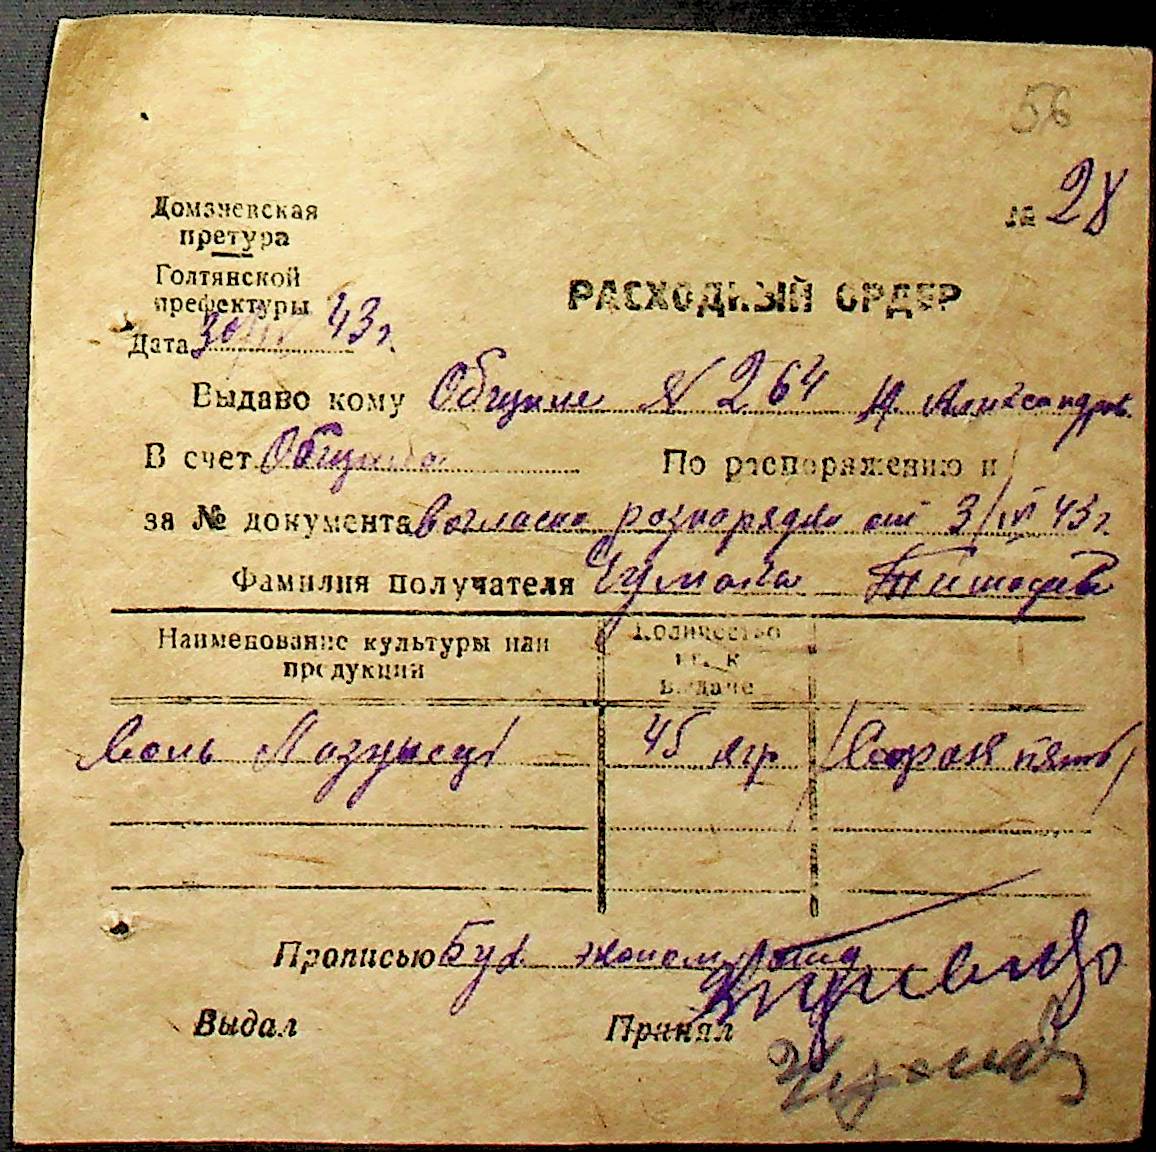 56
№ 28
Домзневская
претура
Голтянской
префектуры
РАСХОДНЫЙ ОРДЕР
Дата 30/IV 43 г.
Выдаво кому Общине № 264 Н. Александров.
В счет По распоряжению и
за № документа розпорядже от 3/IV 43 г.
Фамилия получателя Чумака Тимофей
Наименование культуры или продукции
Количество кг. к выдаче
Соль 45 кгр (Сорок пять)
Прописью Бух.
Выдал Принял